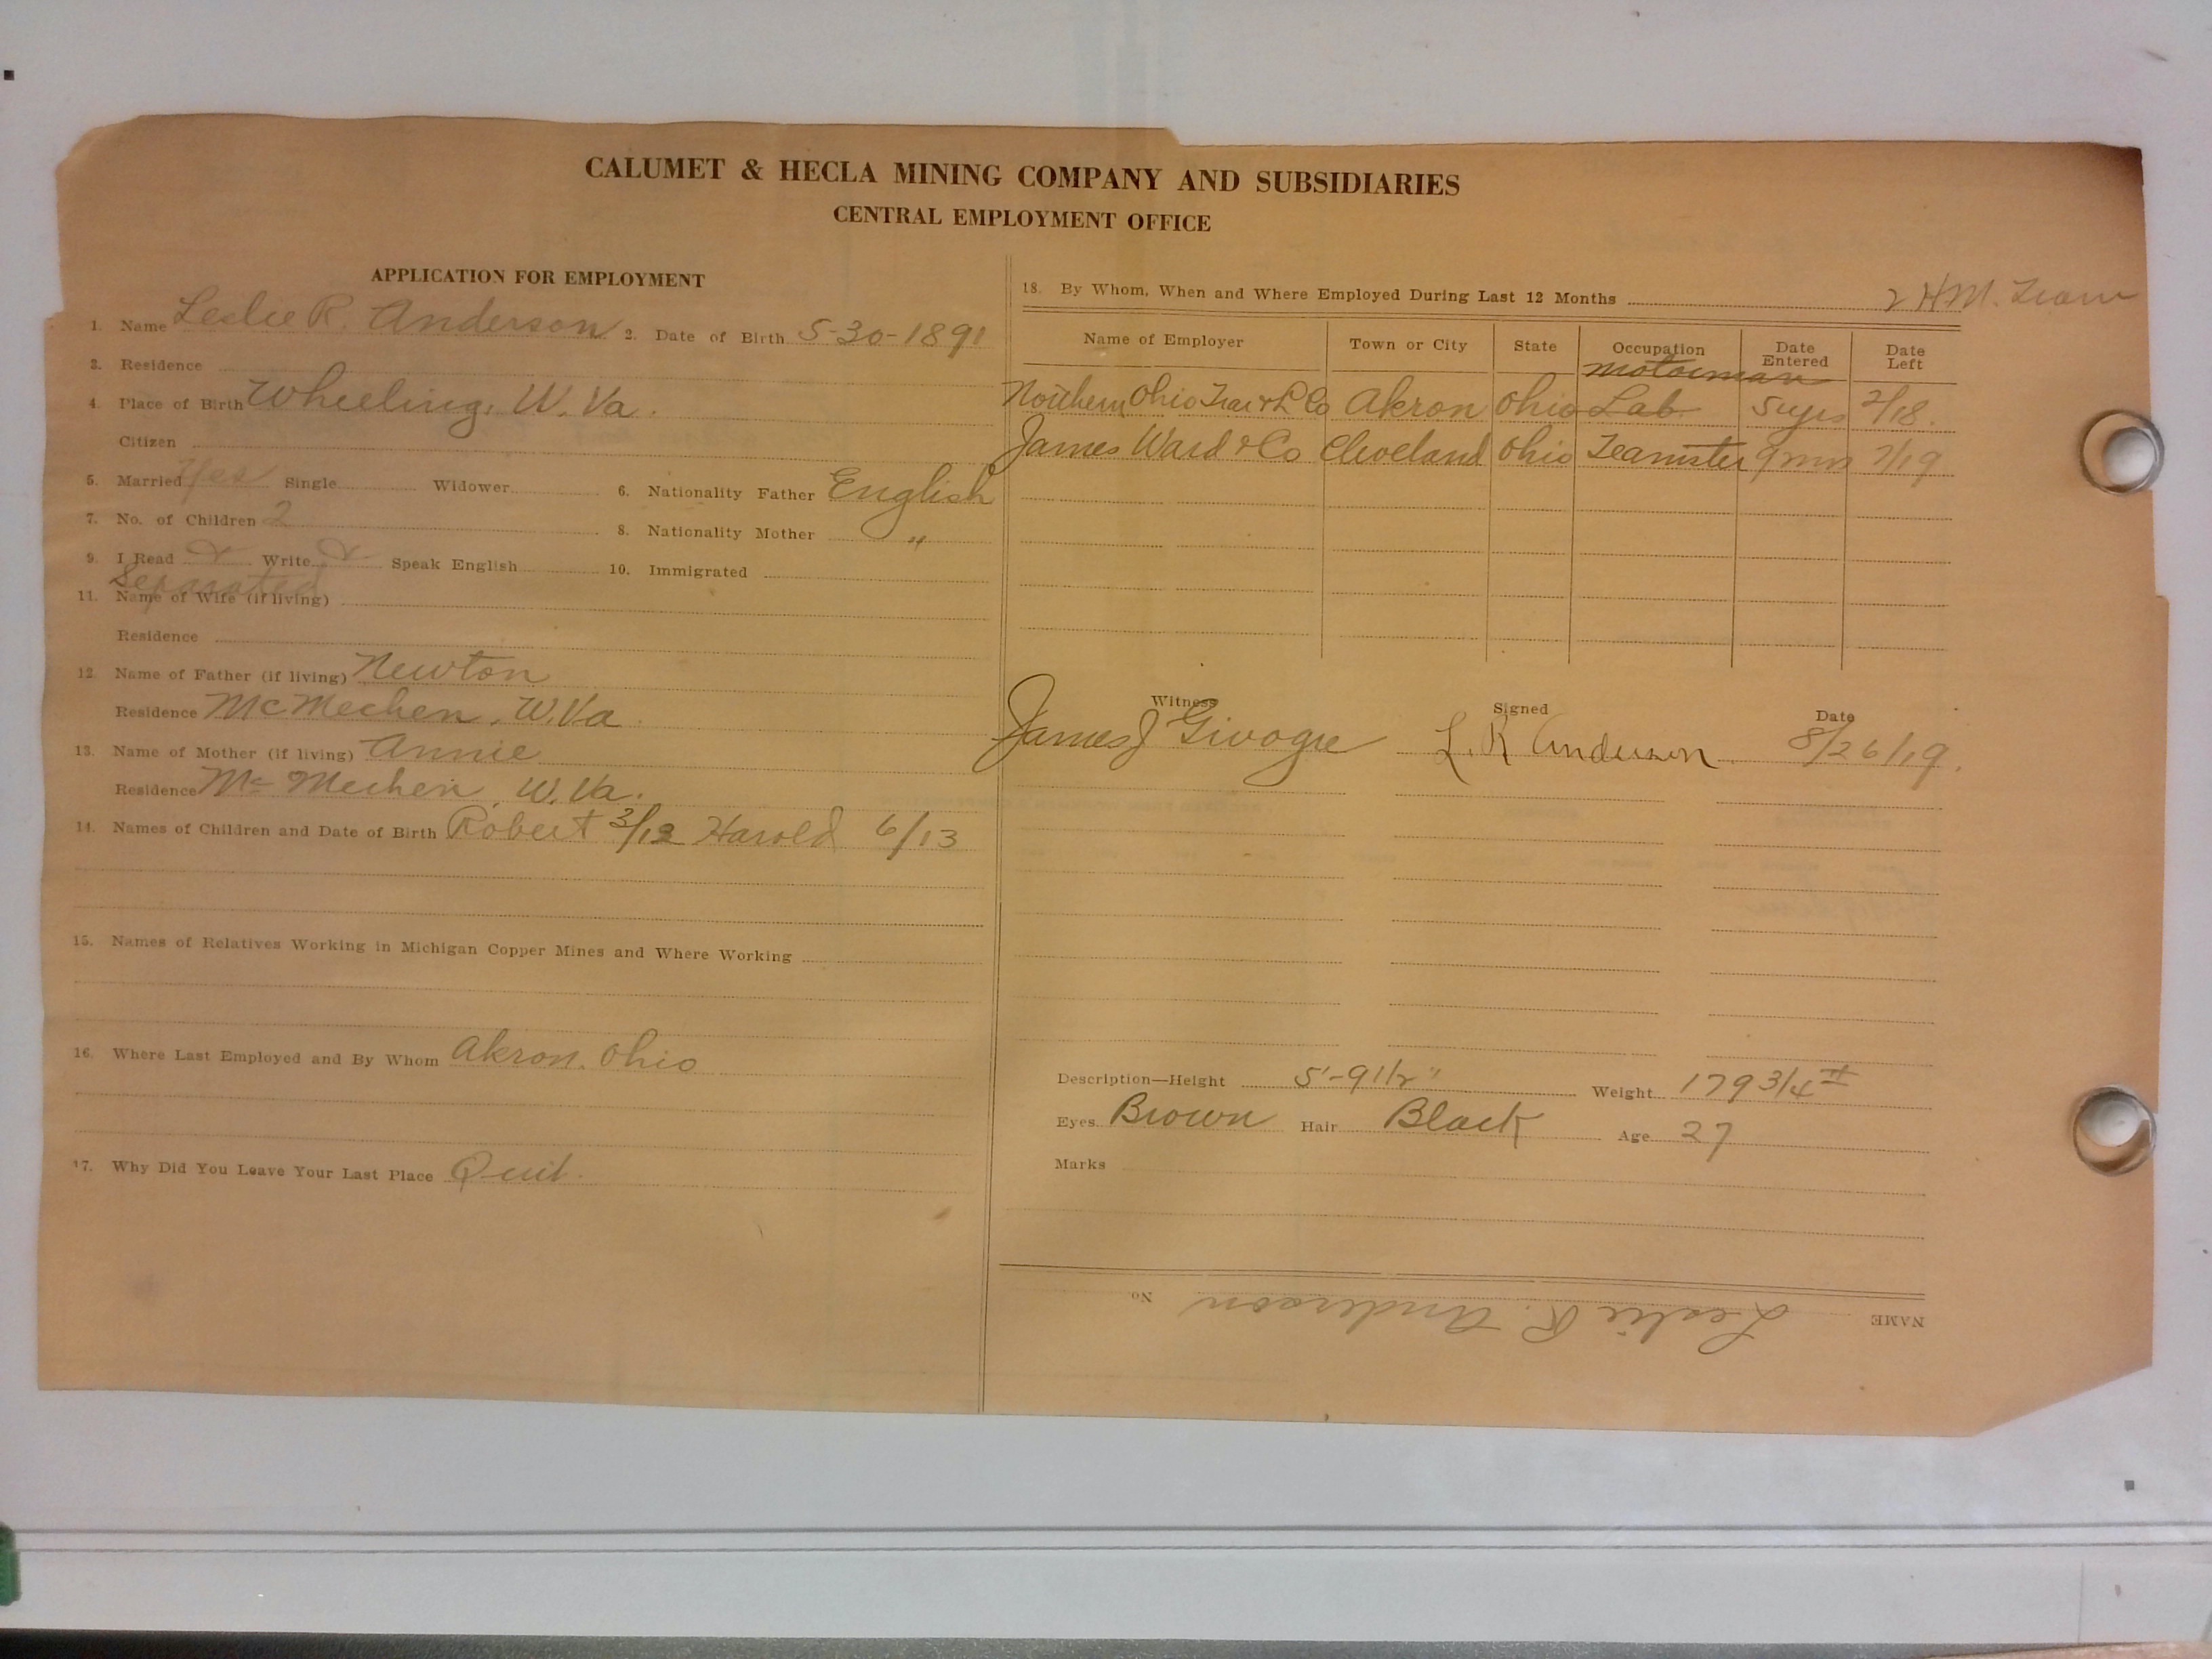 CALUMET & HECLA MINING COMPANY AND SUBSIDIARIES
CENTRAL EMPLOYMENT OFFICE
APPLICATION FOR EMPLOYMENT
1. Name Leslie R. Anderson 2. Date of Birth 5-30-1891
3. Residence
4. Place of Birth Wheeling, W. Va.
Citizen
5. Married Yes Single Widower 6. Nationality Father English
7. No. of Children 2 8. Nationality Mother "
9. I Read Write Speak English 10. Immigrated
Separated
11. Name of Wife (if living)
Residence
12. Name of Father (if living) Newton
Residence McMechen, W. Va.
13. Name of Mother (if living) Annie
Residence Mc Mechen, W. Va.
14. Names of Children and Date of Birth Robert 3/12 Harold 6/13
15. Names of Relatives Working in Michigan Copper Mines and Where Working
16. Where Last Employed and By Whom Akron, Ohio
17. Why Did You Leave Your Last Place Quit.
18. By Whom, When and Where Employed During Last 12 Months 2 HM.
Name of Employer Town or City State Occupation Date Entered Date Left
motorman
Northern Ohio Trac & L Co Akron Ohio Lab 5 yrs 2/18.
James Ward & Co Cleveland Ohio Teamster 9 mos 7/19
Witness Signed Date
James J L. R Anderson 8/26/19.
Description—Height 5'-9 1/2" Weight 179 3/4 #
Eyes Brown Hair Black Age 27
Marks
NAME Leslie R. Anderson No.